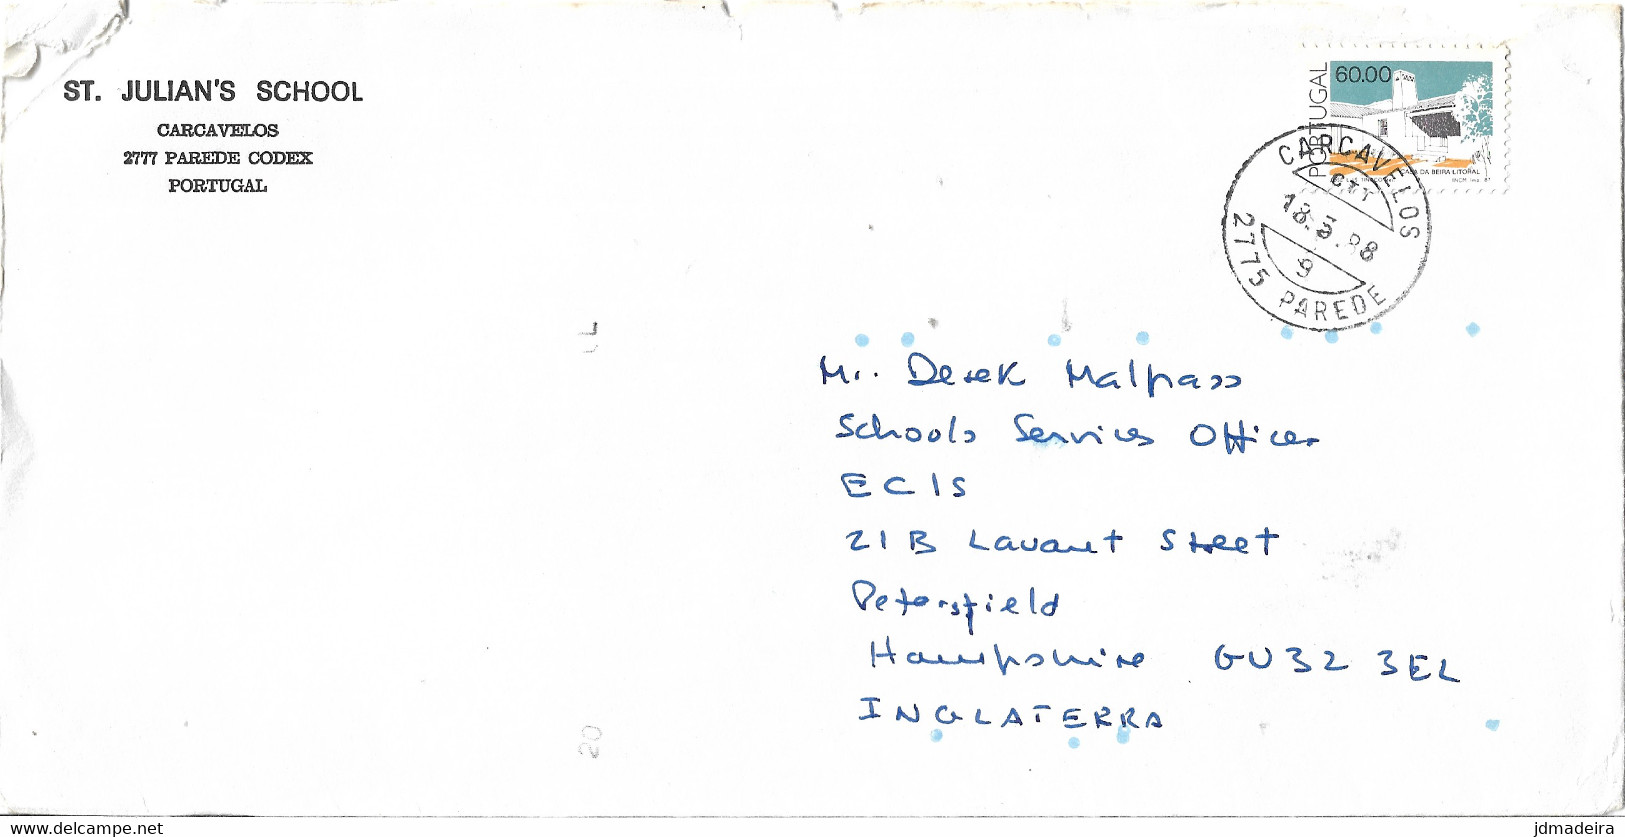 ST. JULIAN'S SCHOOL
CARCAVELOS
2777 PAREDE CODEX
PORTUGAL
60.00
PORTUGAL
CASA DA BEIRA LITORAL
INCM
CARCAVELOS
CTT
18.3.88
9
2775 PAREDE
Mr. Derek Malpass
Schools Services Officer
ECIS
21B Lavant Street
Petersfield
Hampshire GU32 3EL
INGLATERRA
20
www.delcampe.net
jdmadeira